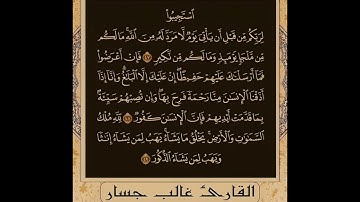 ٱسْتَجِيبُوا۟
لِرَبِّكُم مِّن قَبْلِ أَن يَأْتِىَ يَوْمٌ لَّا مَرَدَّ لَهُۥ مِنَ ٱللَّهِ مَا لَكُم
مِّن مَّلْجَإٍ يَوْمَئِذٍ وَمَا لَكُم مِّن نَّكِيرٍ ٤٧ فَإِنْ أَعْرَضُوا۟
فَمَآ أَرْسَلْنَٰكَ عَلَيْهِمْ حَفِيظًا إِنْ عَلَيْكَ إِلَّا ٱلْبَلَٰغُ وَإِنَّآ إِذَآ
أَذَقْنَا ٱلْإِنسَٰنَ مِنَّا رَحْمَةً فَرِحَ بِهَا وَإِن تُصِبْهُمْ سَيِّئَةٌۢ
بِمَا قَدَّمَتْ أَيْدِيهِمْ فَإِنَّ ٱلْإِنسَٰنَ كَفُورٌ ٤٨ لِّلَّهِ مُلْكُ
ٱلسَّمَٰوَٰتِ وَٱلْأَرْضِ يَخْلُقُ مَا يَشَآءُ يَهَبُ لِمَن يَشَآءُ إِنَٰثًا
وَيَهَبُ لِمَن يَشَآءُ ٱلذُّكُورَ ٤٩
القارئ غالب جسار